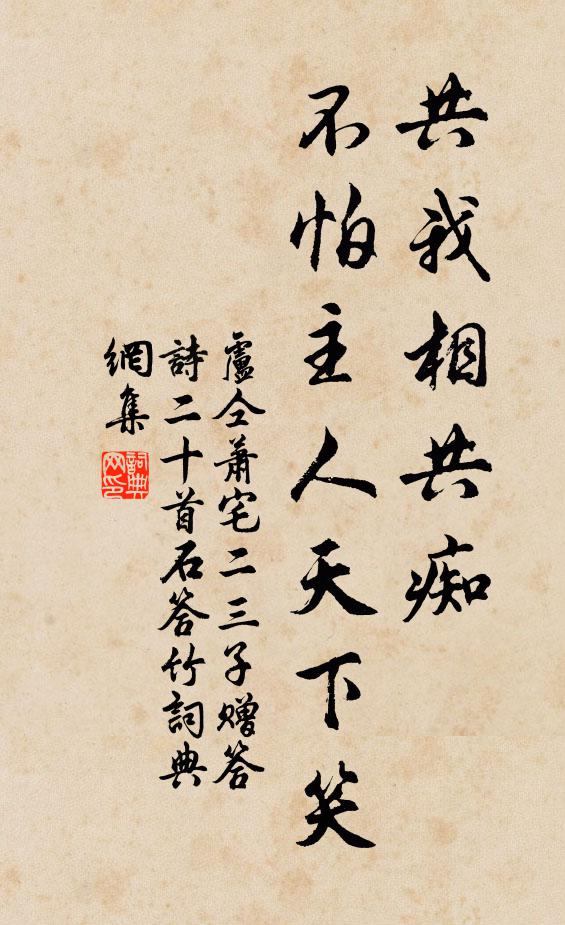 共我相共痴
不怕主人天下笑
盧仝蕭宅二三子贈答
詩二十首石答竹詞典
網集
詞典
网印